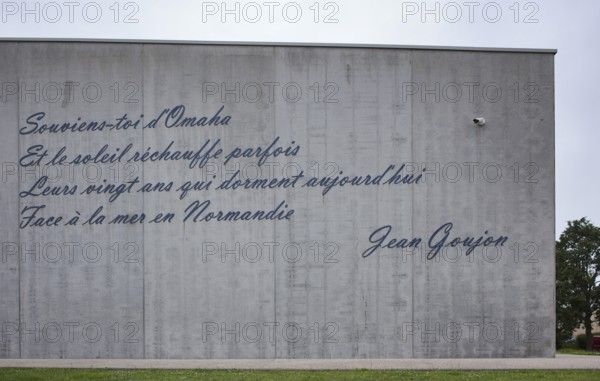 PHOTO 12 PHOTO 12 PHOTO 12
Souviens-toi d'Omaha
Et le soleil réchauffe parfois
Leurs vingt ans qui dorment aujourd'hui
Face à la mer en Normandie
Jean Goujon